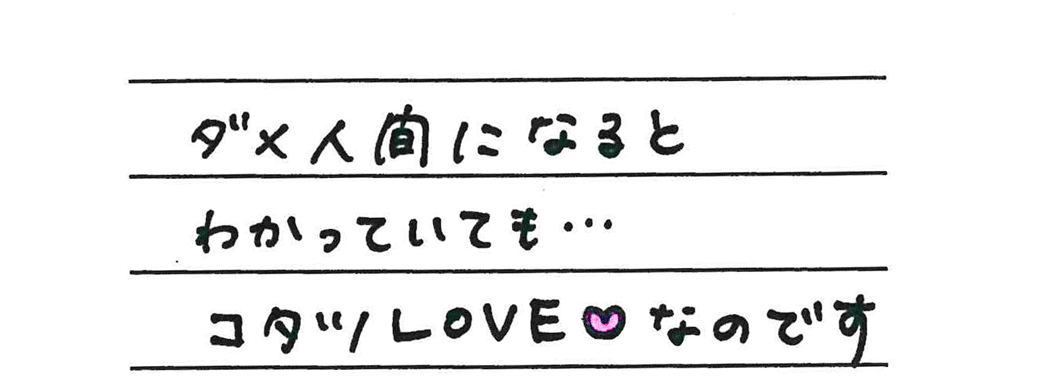 ダメ人間になると
わかっていても…
コタツLOVE♥なのです